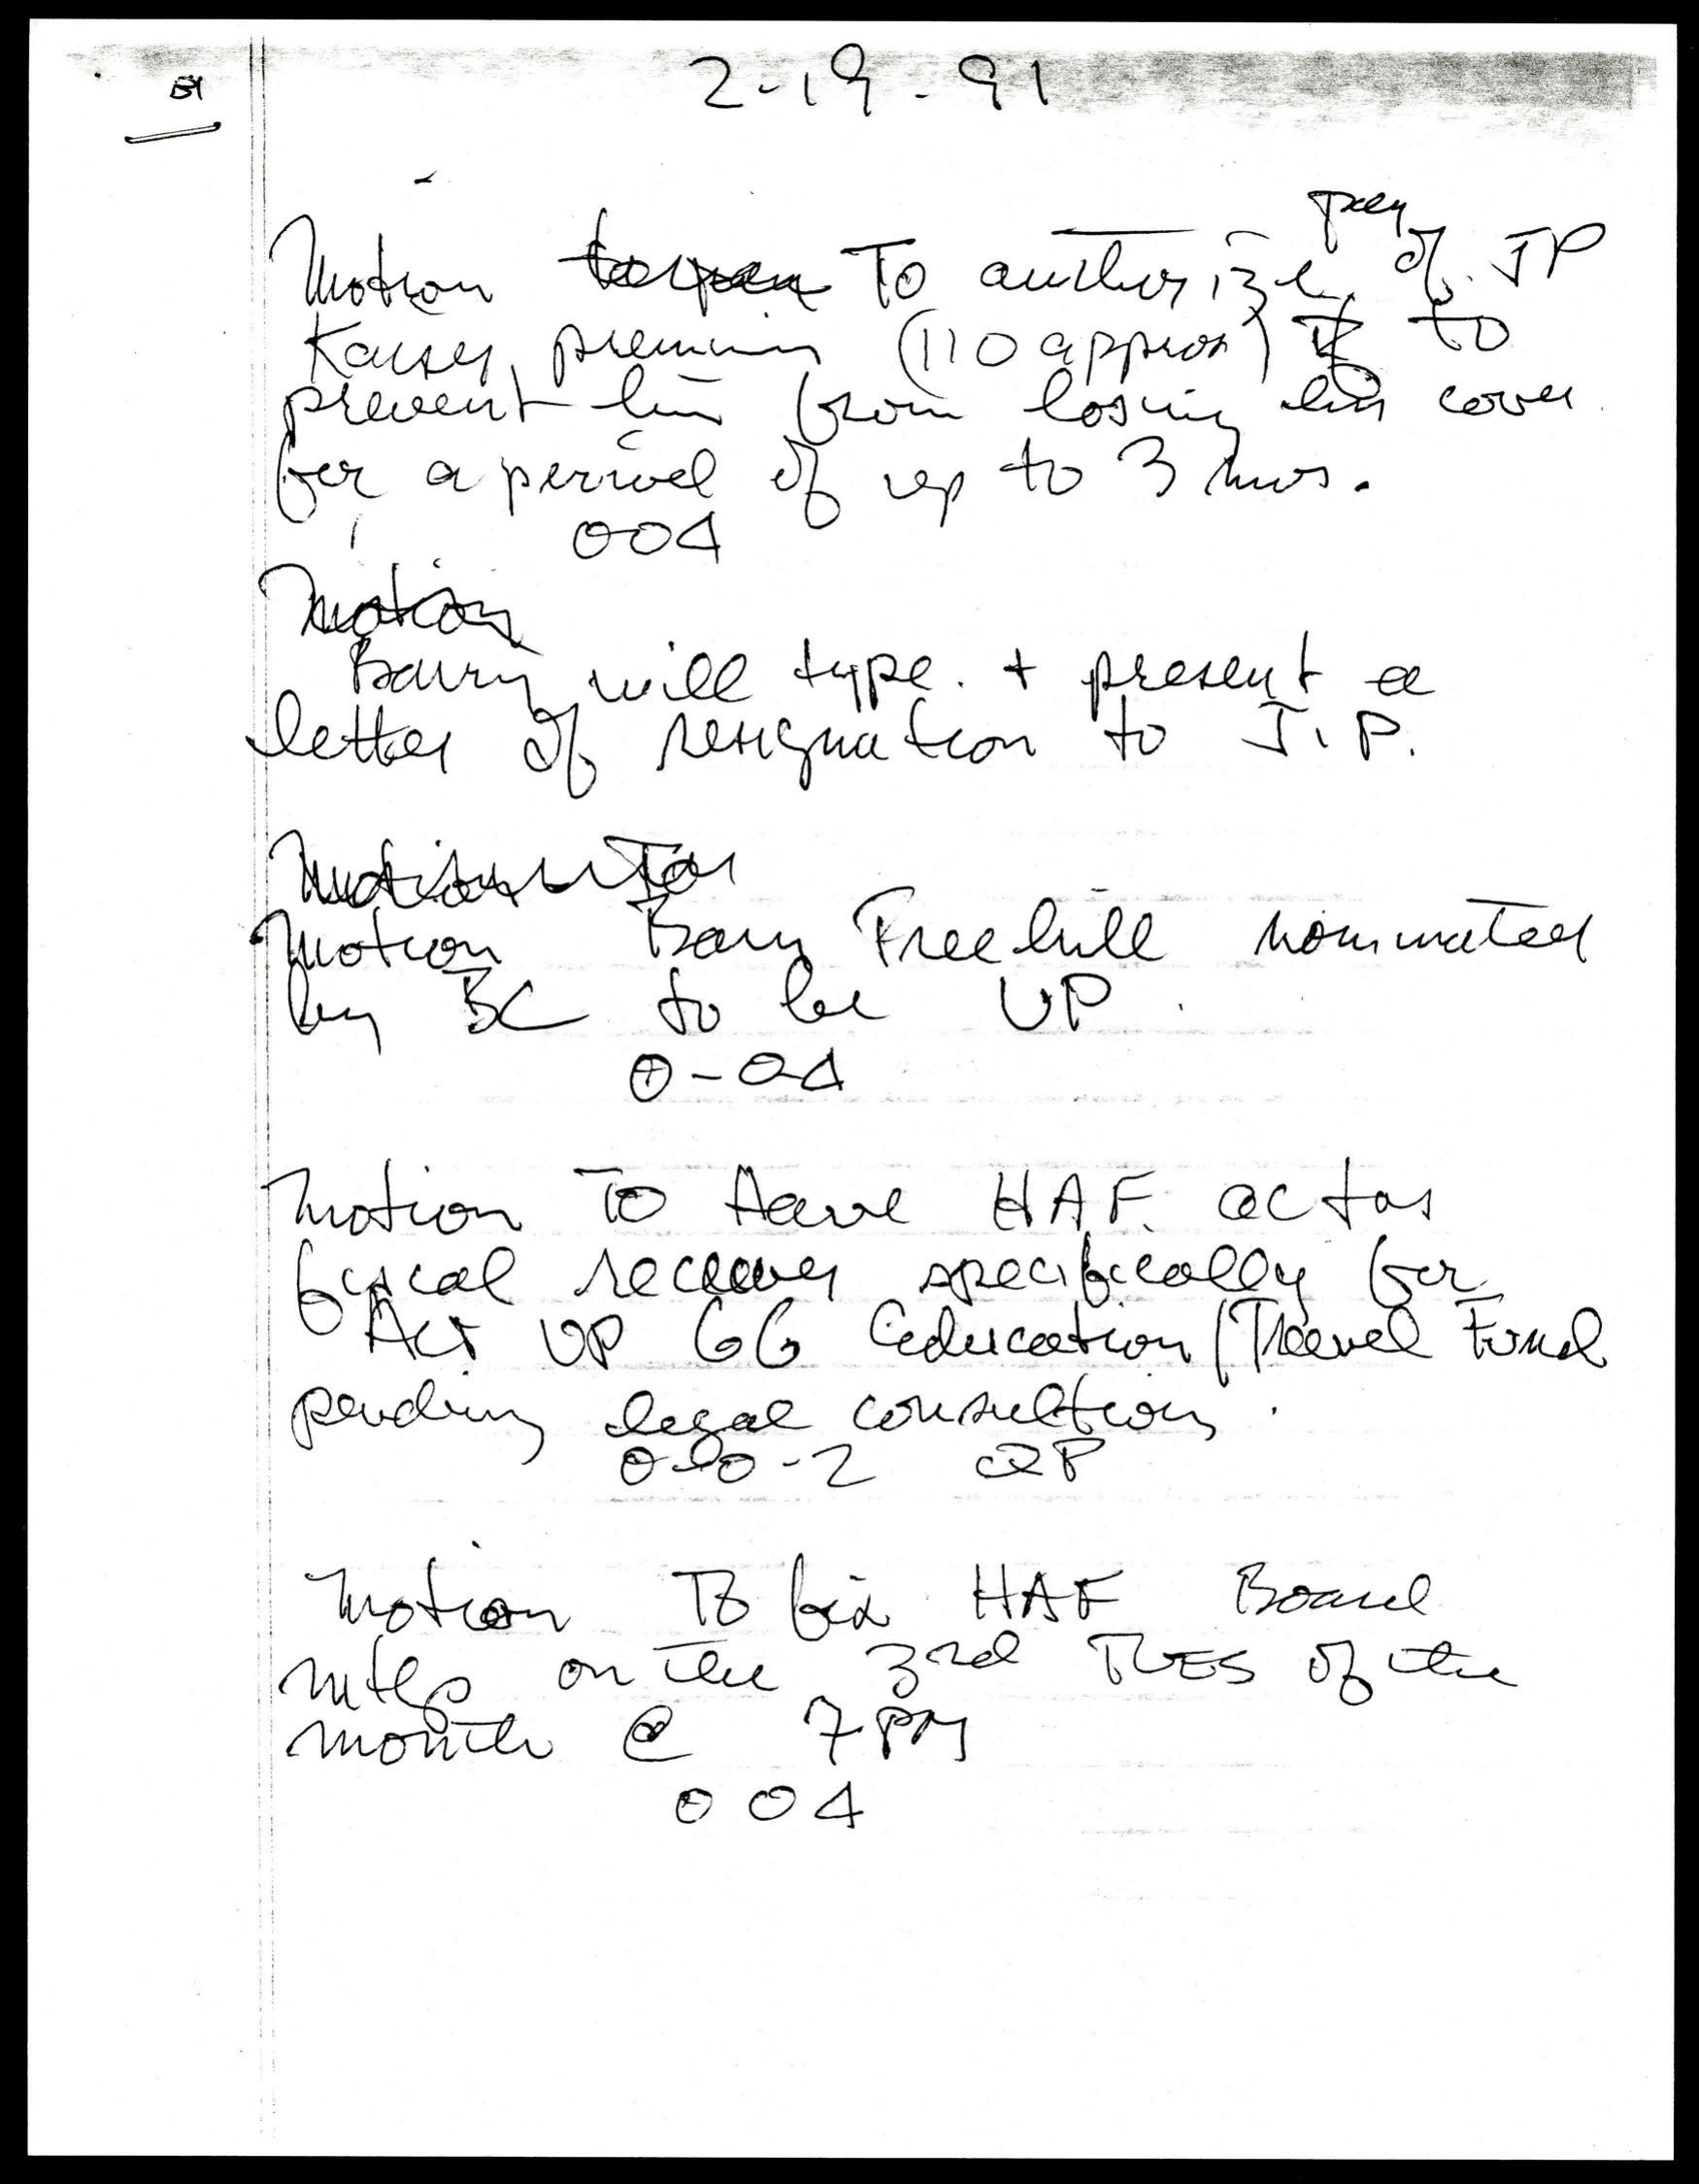 2-19-91
pay
Motion To authorize of JP
Kaiser premium (110 approx) to
prevent him from losing his cover
for a period of up to 3 mos.
004
Motion
Barry will type + present a
letter of resignation to J.P.
Motion
Motion Barry Freehill nominated
by BC to be VP.
0-04
Motion To have HAF. act as
fiscal receiver specifically for
Act UP GG Education/Travel Fund
pending legal consultion.
0-0-2
Motion To fix HAF Board
mtgs on the 3rd TUES of the
month @ 7PM
0 04